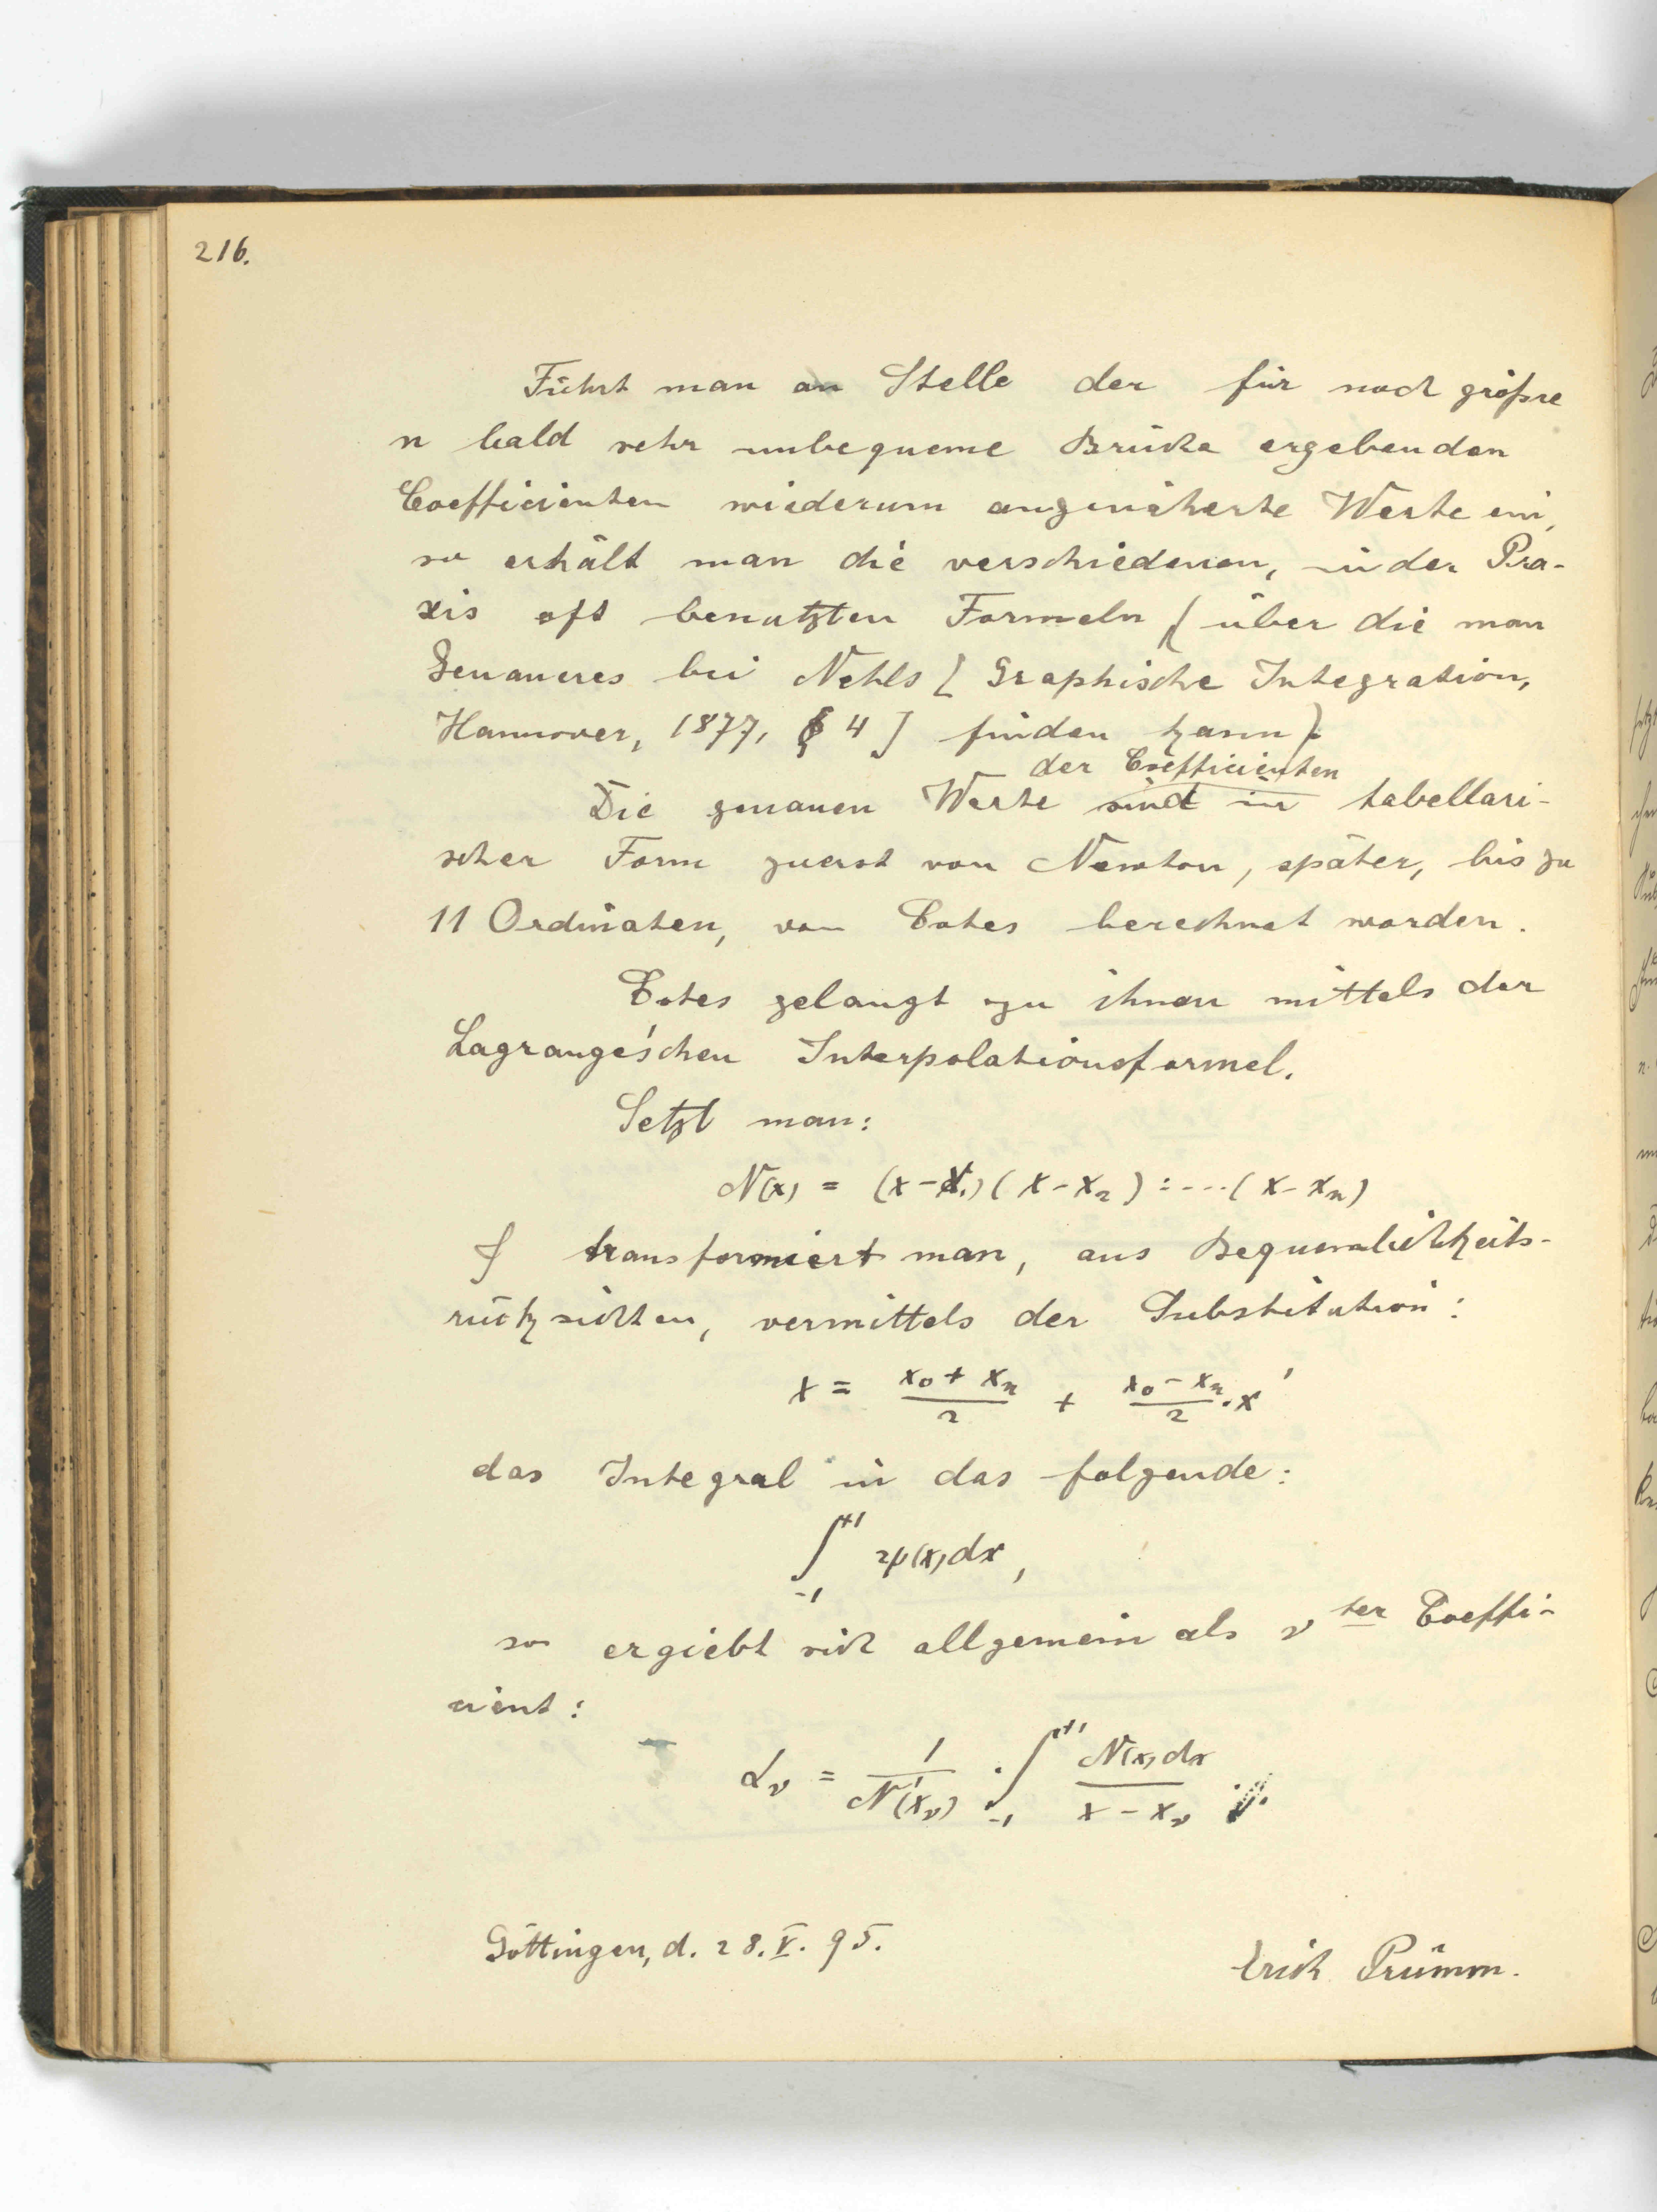 216.
Führt man an Stelle der für noch größre
n bald sehr unbequeme Brüche ergebenden
Coefficienten wiederum angenäherte Werte ein,
so erhält man die verschiedenen, in der Pra-
xis oft benutzten Formeln (über die man
Genaueres bei Nehls [Graphische Integration,
Hannover, 1877, § 4] finden kann).
der Coefficienten
Die genauen Werte sind in tabellari-
scher Form zuerst von Newton, später, bis zu
11 Ordinaten, von Cotes berechnet worden.
Cotes gelangt zu ihnen mittels der
Lagrange'schen Interpolationsformel.
Setzt man:
N(x) = (x-x₁)(x-x₂):....(x-xₙ)
transformiert man, aus Bequemlichkeits-
rücksichten, vermittels der Substitution:
x = (x₀ + xₙ)/2 + (x₀ - xₙ)/2 . x'
das Integral in das folgende:
∫₋₁⁺¹ ψ(x)dx,
so ergiebt sich allgemein als ν ter Coeffi-
cient:
αν = 1/N'(xν) . ∫₋₁⁺¹ N(x)dx/(x - xν)
Göttingen, d. 28. V. 95.
Erich Prümm.